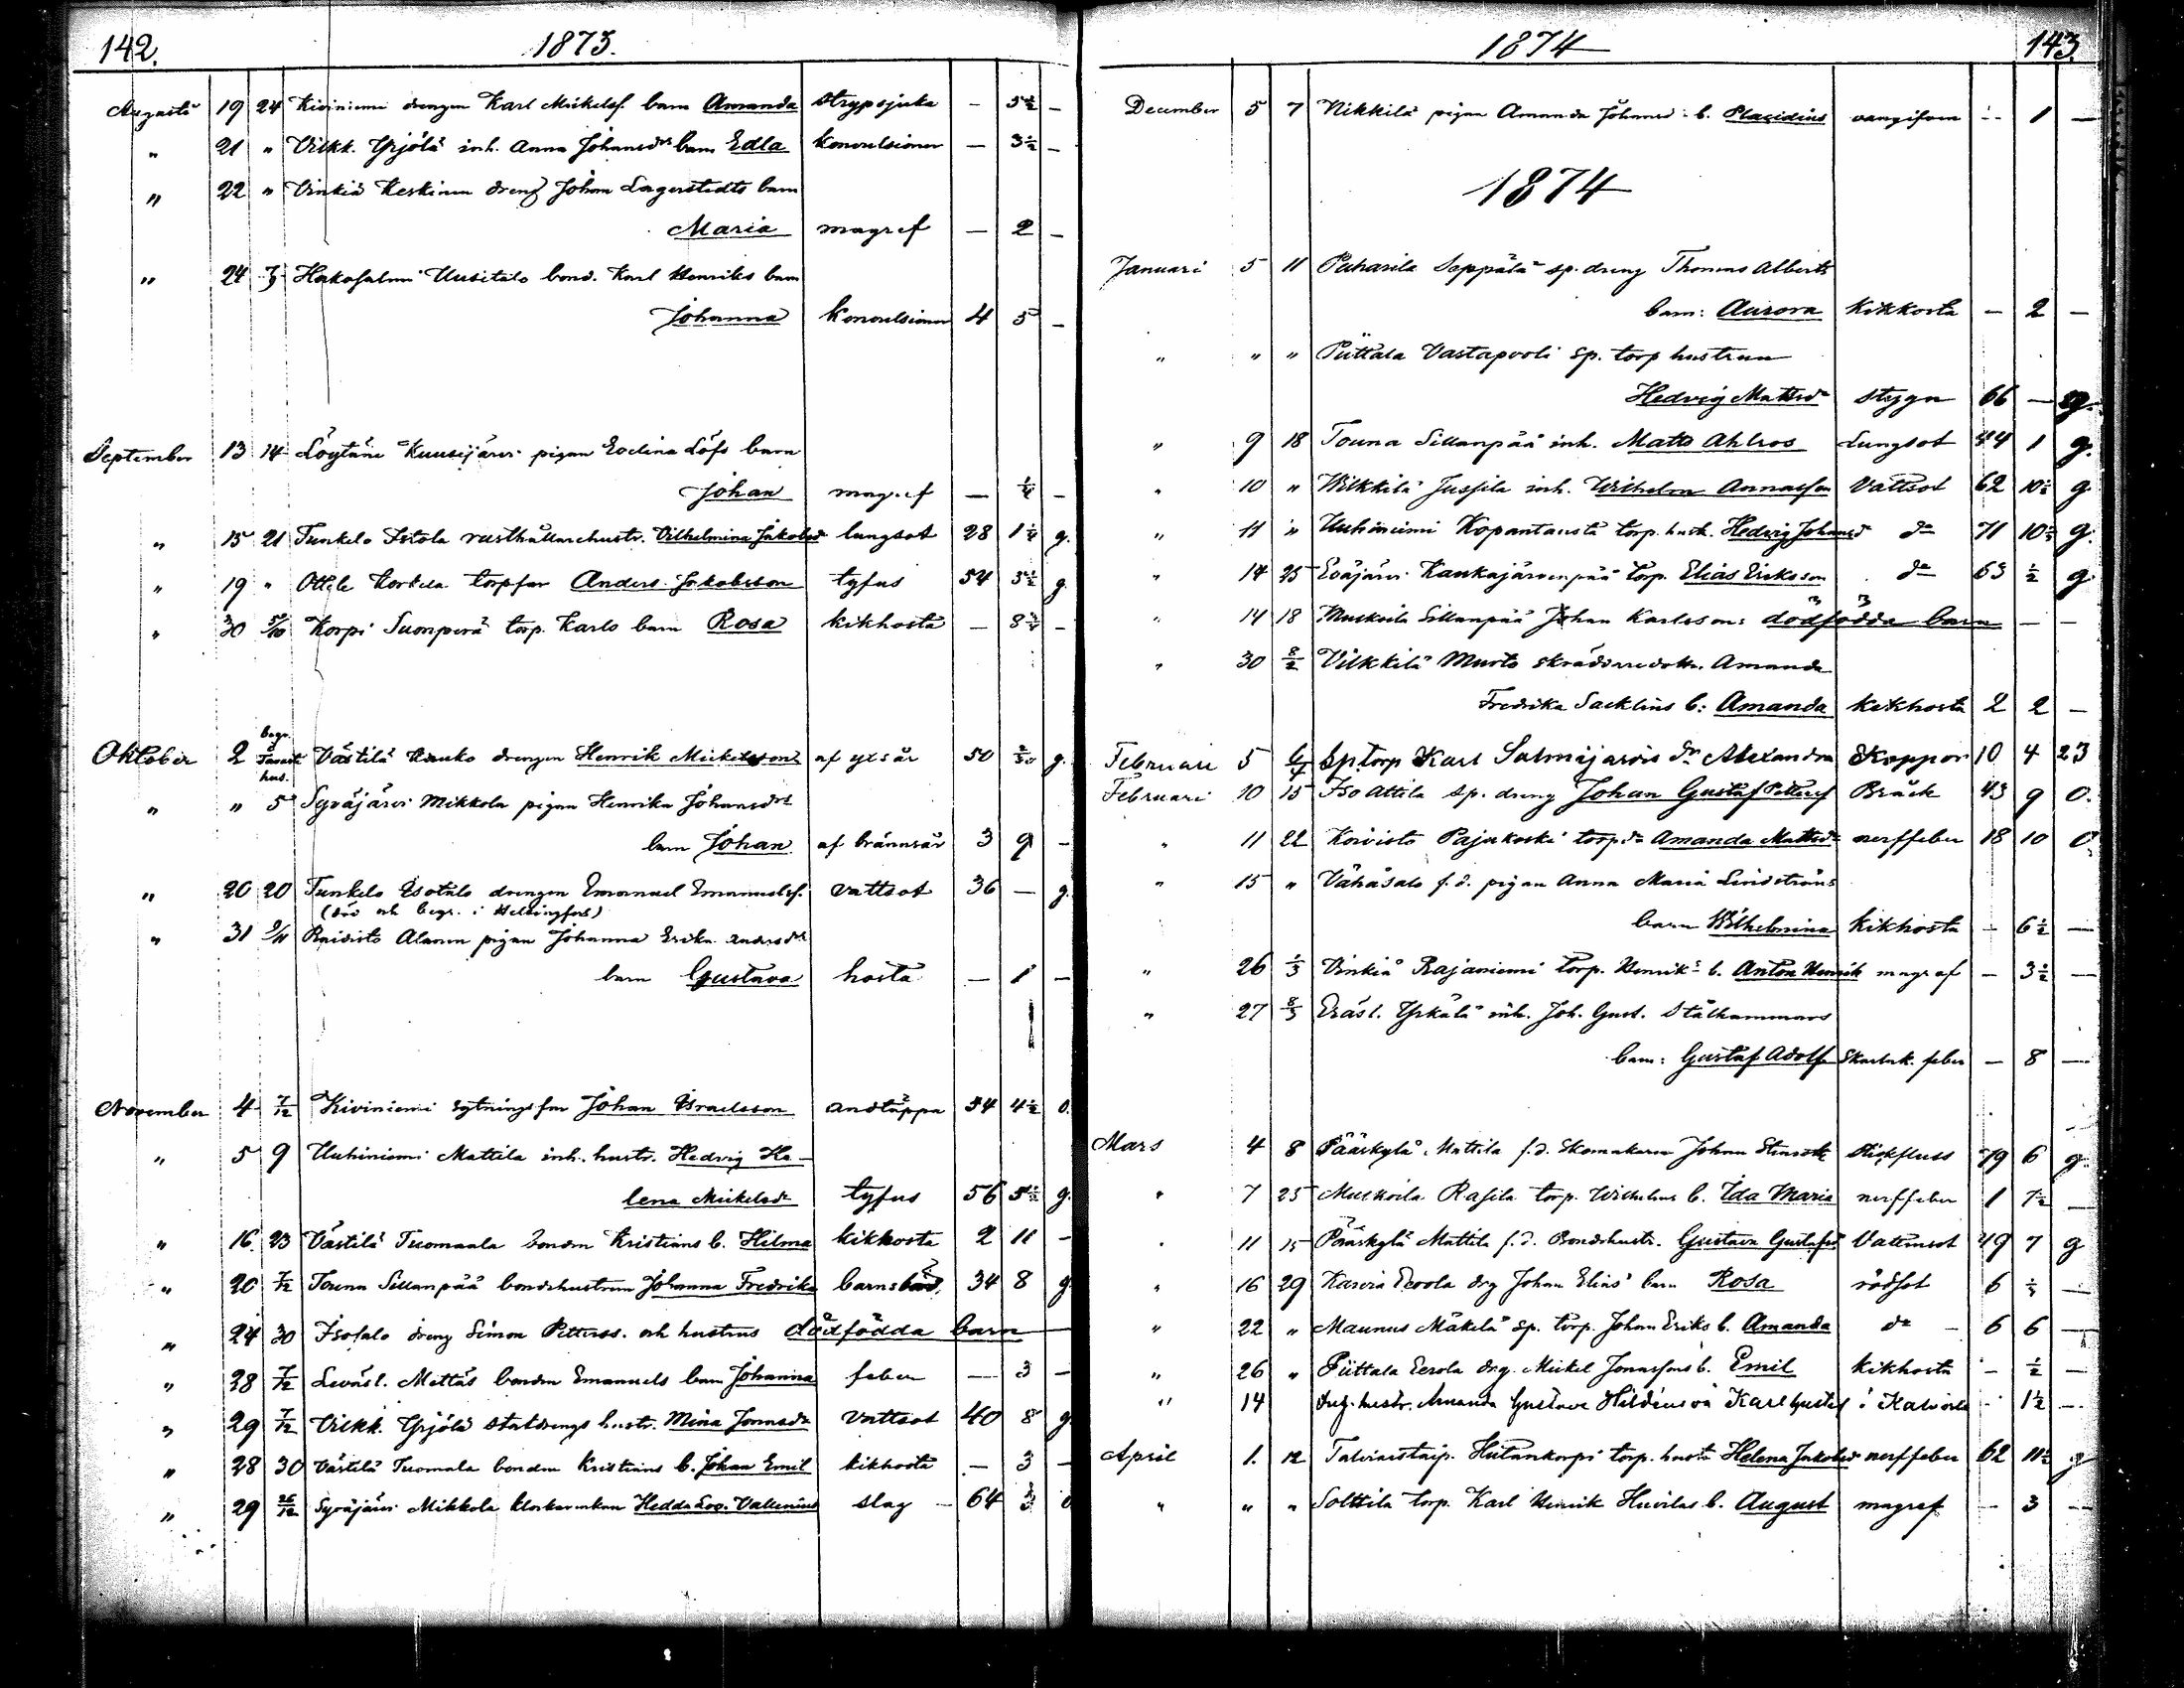 142.
1873.
Augusti 19 24 Kiviniemi drengen Karl Mickelsf. barn Amanda strypsjuka — 5½ —
" 21 " Vilkk. Yrjölä inh. Anna Johansdr barn Edla konvulsioner — 3½ —
" 22 " Vinkiä Keskinen dreng Johan Lagerstedts barn
Maria magref — 2 —
" 24 Hakosalmi Uusitalo bond. Karl Henriks barn
Johanna konvulsioner 4 5 —
September 13 14 Löytäne Kuusijärvi pigan Evelina Löfs barn
Johan magref — ¼ —
" 15 21 Tunkelo Istola rusthållarehustr. Vilhelmina Jakobsd lungsot 28 1¼ g.
" 19 " Ottile Korkela torpfar Anders Jakobsson tyfus 54 5½ g.
" 30 5/10 Korpi Suonperä torp. Karls barn Rosa kikhosta — 8¾ —
begr.
Oktober 2 Tavast Västilä drengen Henrik Mickelsson af yxsår 50 g.
hus.
" " 5 Syväjärvi Mikkola pigan Henrika Johansdr
barn Johan af brännsår 3 9 —
" 20 20 Tunkelo Isotalo drengen Emanuel Emanuelsf. vattsot 36 — g.
(död och begr. i Helsingfors)
" 31 2/11 Raivisto Alanen pigan Johanna Erika Andersdr
barn Gustava hosta — 1 —
November 4 7/12 Kiviniemi sytningsfar Johan Israelsson andtäppa 54 4½ o.
" 5 9 Uuhiniemi Mattila inh. hustr. Hedvig He-
lena Mickelsdr tyfus 56 5½ g.
" 16 23 Västilä Tuomaala bonden Kristians b. Hilma kikhosta 2 11 —
" 20 7/12 Touna Sillanpää bondehustrun Johanna Fredrika barnsbörd 34 8 g
" 24 30 Isosalo dreng Simon Petterss. och hustrus dödfödda barn —
" 28 7/12 Leväsl. Mattas bonden Emanuels barn Johanna feber — 3 —
" 29 7/12 Vilkk. Yrjölä statdrengs hustr. Mina Jonasdr vattsot 40 8 g
" 28 30 Västilä Tuomala bonden Kristians b. Johan Emil kikhosta — 3 —
" 29 26/12 Syväjärvi Mikkola klockarenkan Hedda Lov. Vallenius slag — 64 o
1874
143.
December 5 7 Nikkilä pigan Amanda Johansd: b. Placidius vangifven — 1 —
1874
Januari 5 11 Paharila Seppälä sp. dreng Thomas Alberts
barn: Aurora kikhosta — 2 —
" " " Piittala Vastapooli sp. torp hustrun
Hedvig Mattsdr stygn 66 — g.
" 9 18 Touna Sillanpää inh. Matts Ahlros Lungsot 44 1 g.
" 10 " Wilkkilä Jussila inh. Wilhelm Annasson Vattsot 62 10½ g
" 11 " Uuhiniemi Kopantausta torp. hust. Hedvig Johansd do 71 10½ g.
" 14 25 Eväjärvi Kaukajärvenpää torp. Elias Eriksson do 63 ½ g.
" 14 18 Muskoila Sillanpää Johan Karlssons dödfödda barn — —
" 30 8/2 Vilkkilä Murto skräddaredottr. Amanda
Fredrika Sacklins b: Amanda kikhosta 2 2 —
Februari 5 Sp. torp Karl Salmijärvis dr Alexandra Koppor 10 4 23
Februari 10 15 Iso Attila sp. dreng Johan Gustaf Pettersf Bråck 43 9 o.
" 11 22 Koivisto Pajukoski torp. dr Amanda Mattsdr nerffeber 18 10 o
" 15 " Vähäsalo f.d. pigan Anna Maria Lindströms
barn Wilhelmina kikhosta — 6½ —
" 26 1/3 Vinkiä Rajaniemi torp. Henriks b. Anton Henrik magref — 3½ —
" 27 8/3 Eräsl. Yrkälä inh. Joh. Gust. Stålhammars
barn: Gustaf Adolf Skarlak. feber — 8 —
Mars 4 8 Pääskylä Mattila f.d. Skomakaren Johan Stenroth Slickfluss 79 6 g.
" 7 25 Muskoila Rasila torp. Wilhelms b. Ida Maria nerffeber 1 7½ —
" 11 15 Pääskylä Mattila f.d. Bondehustr. Gustava Gustafsd Vattensot 49 7 g
" 16 29 Karvia Eerola drg Johan Elias' barn Rosa rödsot 6 —
" 22 " Maunus Mäkelä sp. torp. Johan Eriks b. Amanda do — 6 6 —
" 26 " Piittala Eerola drg. Mickel Jonassons b. Emil kikhosta — ½ —
" 14 Drg. hustr. Amanda Gustava Hildéns oä Karl Gustaf i Kalvola — 1½ —
April 1. 12 Talviaistaip. Hiitankorpi torp. hustr Helena Jakobsd nerffeber 62 11½ g
" " " Solttila torp. Karl Henrik Huvilas b. August magref — 3 —